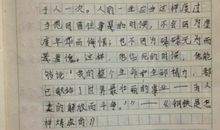 于人一次。人的一生应当这样度过
当他回首往事是的时候,不会因为虚
度年华而悔恨,也不因为碌碌无为而
羞愧。这样,在临死的时候,他能
够说:“我的整个生命和全部精力,都
已献给了世界最壮丽的事业——为人
类的解放而斗争。”——《钢铁是怎
样炼成的》